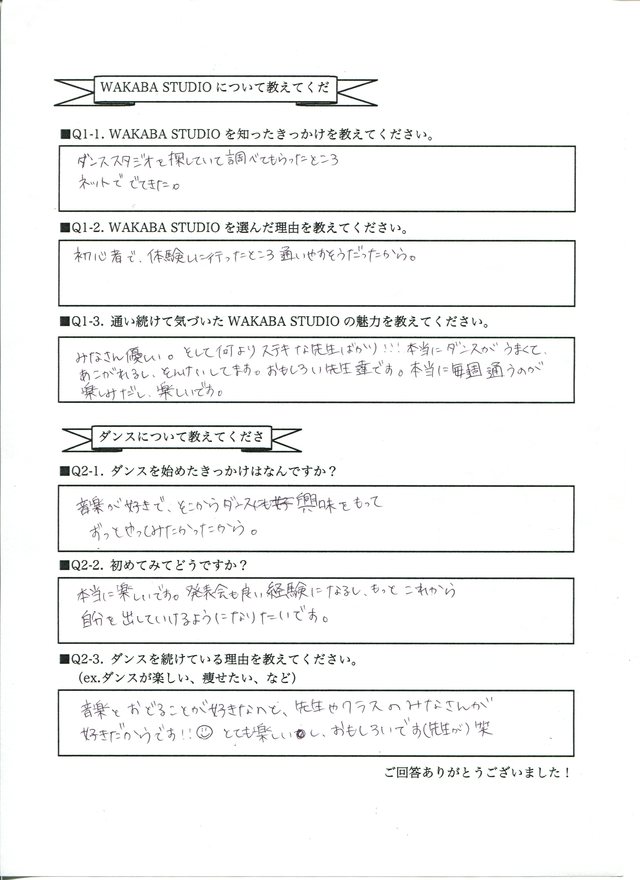 WAKABA STUDIO について教えてくだ
■Q1-1. WAKABA STUDIO を知ったきっかけを教えてください。
ダンススタジオを探していて調べてもらったところ
ネットででてきた。
■Q1-2. WAKABA STUDIO を選んだ理由を教えてください。
初心者で、体験しに行ったところ通いやすそうだったから。
■Q1-3. 通い続けて気づいた WAKABA STUDIO の魅力を教えてください。
みなさん優しい。そして何よりステキな先生ばかり!!!本当にダンスがうまくて、
あこがれるし、そんけいしてます。おもしろい先生達です。本当に毎週通うのが
楽しみだし、楽しいです。
ダンスについて教えてくださ
■Q2-1. ダンスを始めたきっかけはなんですか？
音楽が好きで、そこからダンスにも興味をもって
ずっとやってみたかったから。
■Q2-2. 初めてみてどうですか？
本当に楽しいです。発表会も良い経験になるし、もっとこれから
自分を出していけるようになりたいです。
■Q2-3. ダンスを続けている理由を教えてください。
（ex.ダンスが楽しい、痩せたい、など）
音楽とおどることが好きなのと、先生やクラスのみなさんが
好きだからです!!☺ とても楽しいし、おもしろいです(先生が)笑
ご回答ありがとうございました！